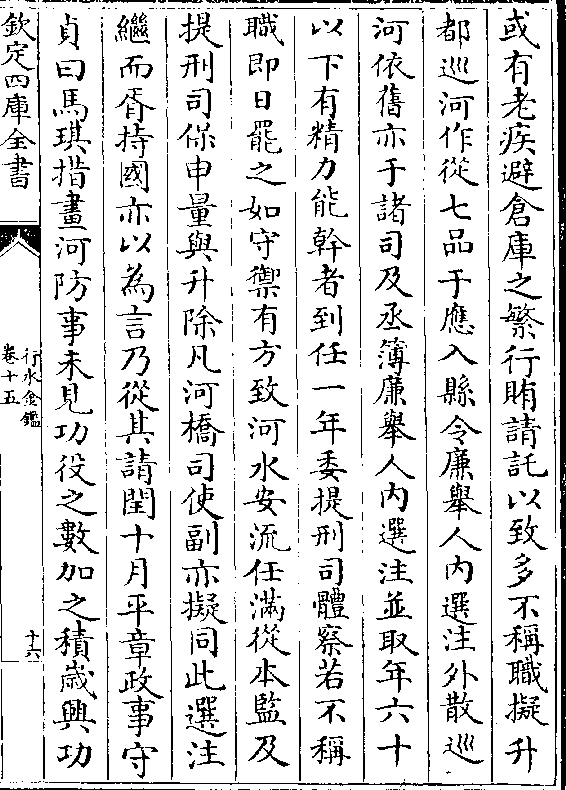 或有老疾避倉庫之繁行賄請託以致多不稱職擬升
都巡河作從七品于應入縣令廉舉人內選注外散巡
河依舊亦于諸司及丞簿廉舉人內選注並取年六十
以下有精力能幹者到任一年委提刑司體察若不稱
職即日罷之如守禦有方致河水安流任滿從本監及
提刑司保申量與升除凡河橋司使副亦擬同此選注
繼而胥持國亦以為言乃從其請閏十月平章政事守
貞曰馬琪措畫河防事未見功役之數加之積歲興功
欽定四庫全書
行水金鑑
卷十五
十六